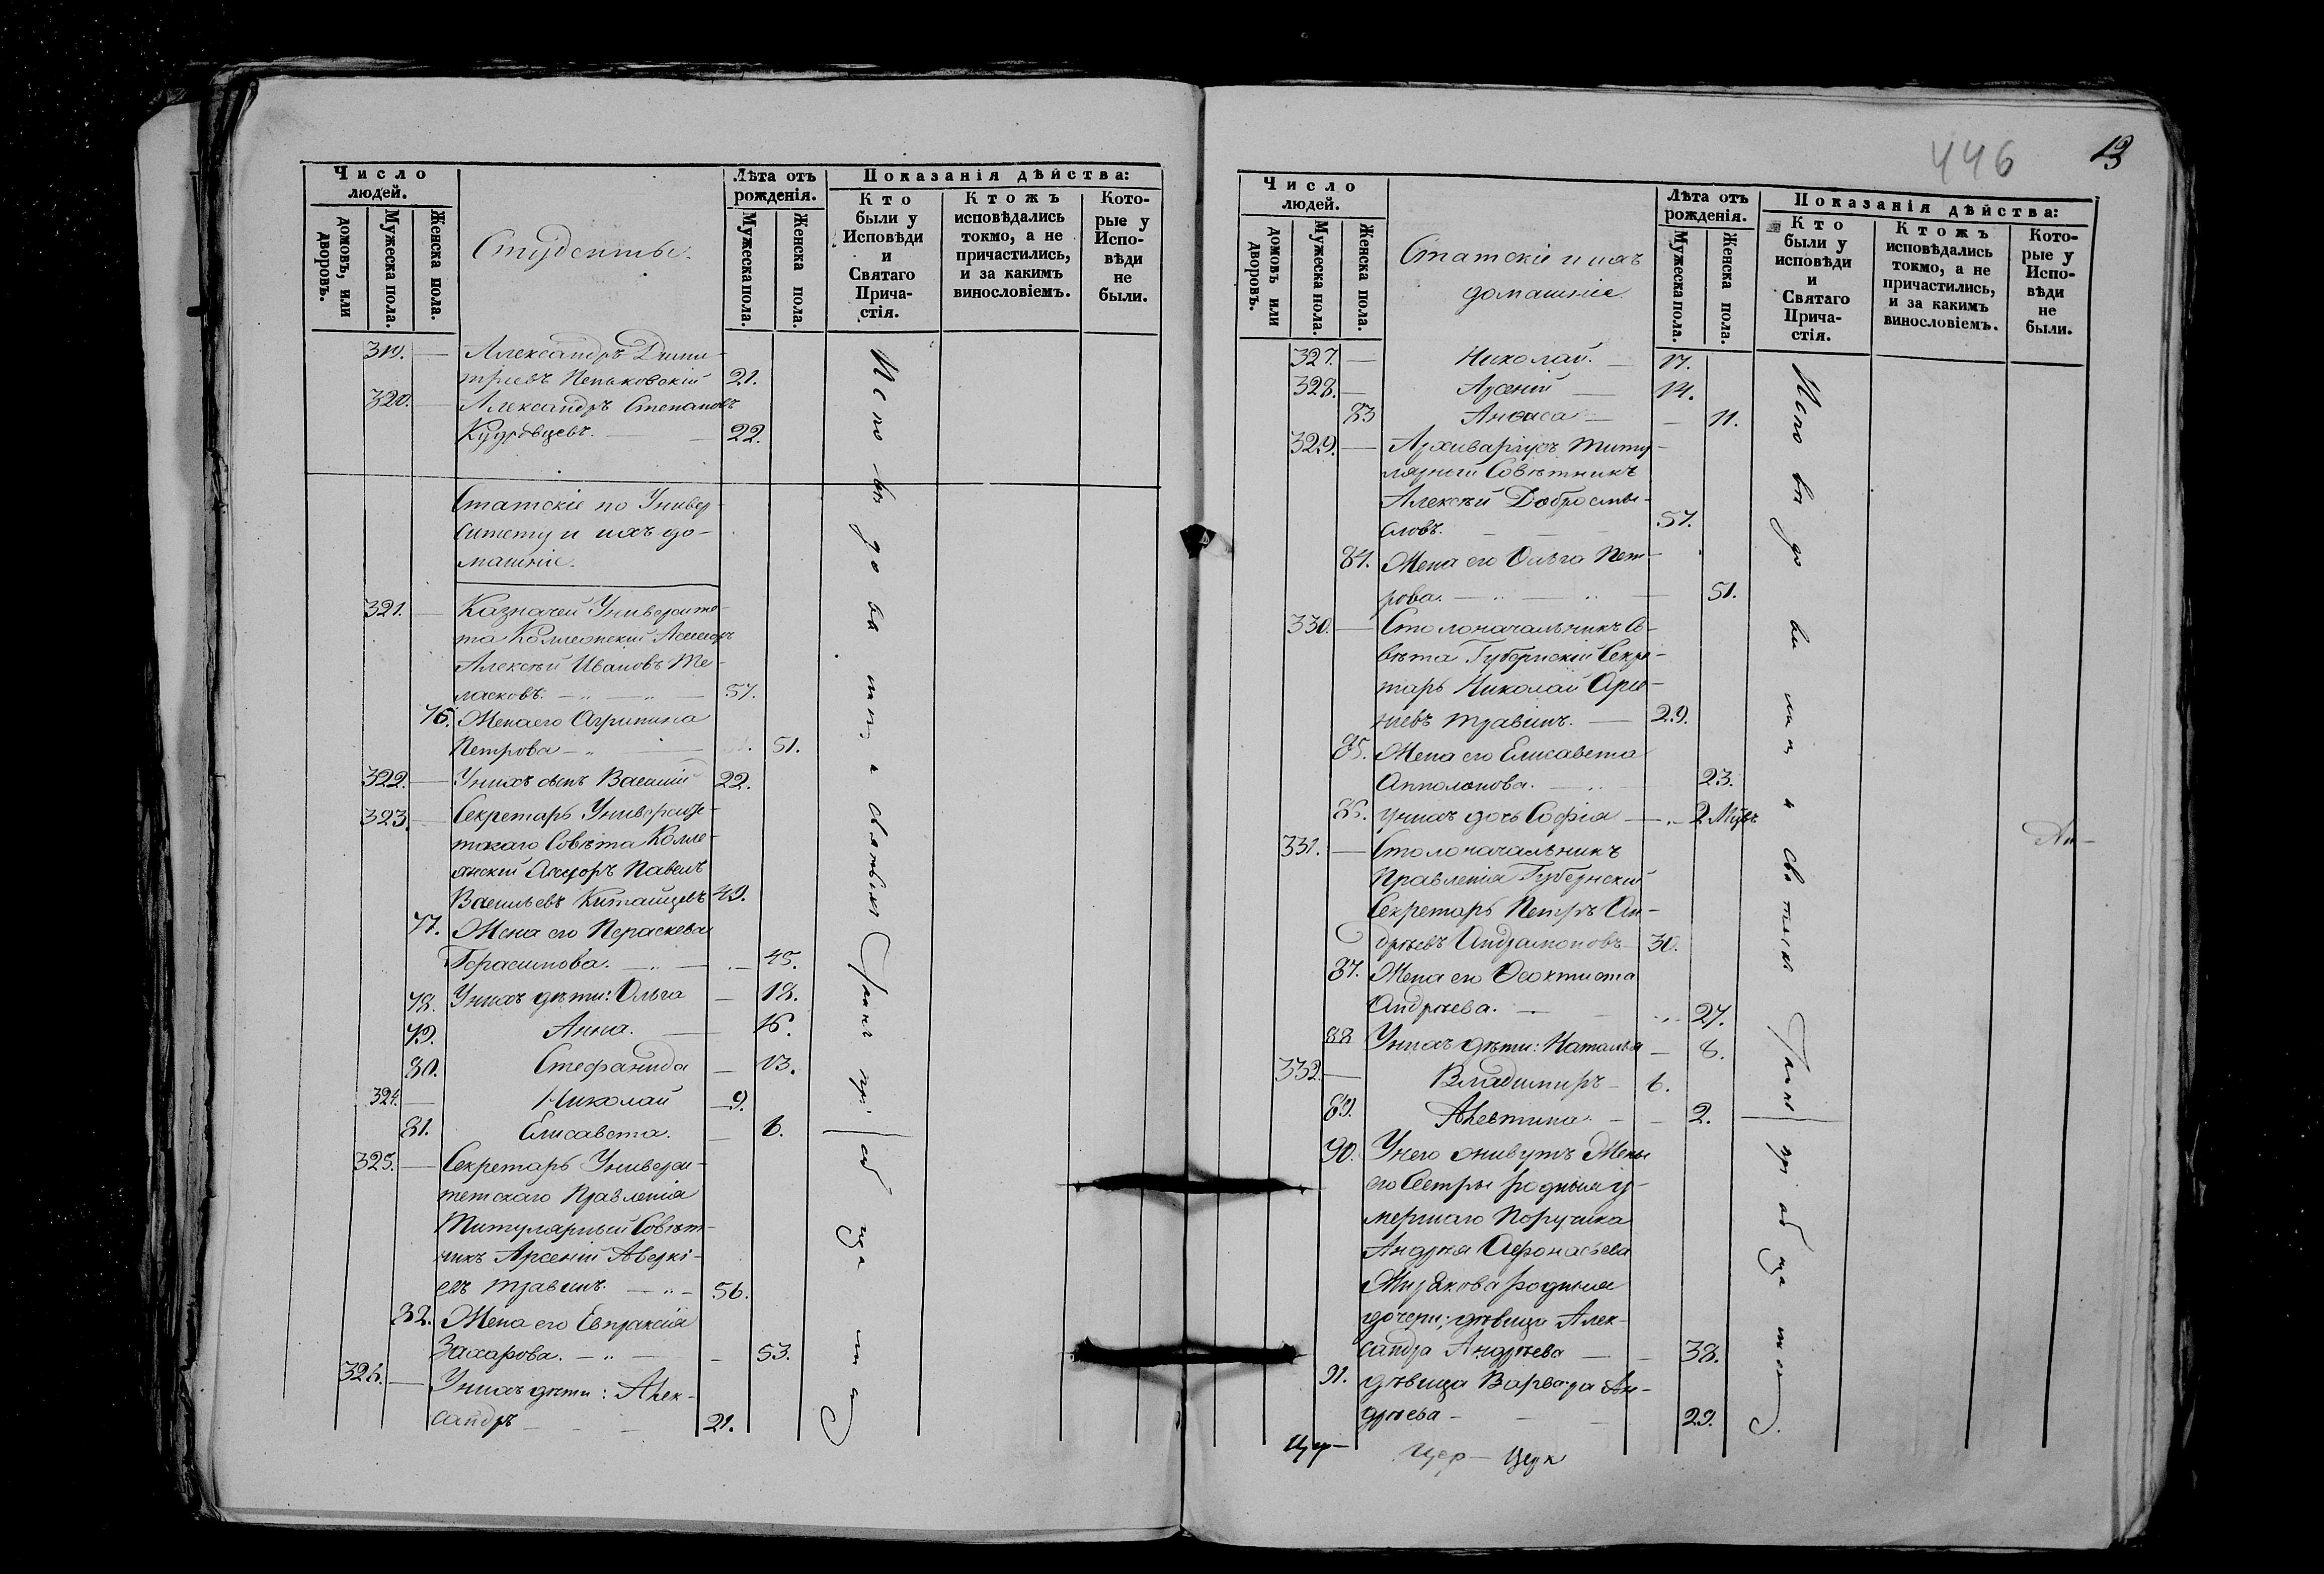 Число
людей.
домовъ, или дворовъ.
Мужеска пола.
Женска пола.
Студенты.
Лѣта отъ
рожденія.
Мужеска пола.
Женска пола.
Показанія дѣйства:
Кто
были у
Исповѣди
и
Святаго
Прича-
стія.
Ктожъ
исповѣдались
токмо, а не
причастились,
и за какимъ
винословіемъ.
Кото-
рые у
Испо-
вѣди
не
были.
319. — Александръ Дими-
тріевъ Пеньковскій 21.
320. — Александръ Степановъ
Кудрявцевъ. — 22.
Статскіе по Универ-
ситету и ихъ до-
машніе.
321. — Казначей Университе-
та Коллежскій Ассесоръ
Алексѣй Ивановъ Те-
ласковъ. — 57.
76. Жена его Агрипина
Петрова — 51.
322. — У нихъ сынъ Василій 22.
323. — Секретарь Универси-
тскаго Совѣта Колле-
жскій Ассесоръ Павелъ
Васильевъ Китайцевъ 49.
77. Жена его Параскева
Герасимова. — 45.
78. У нихъ дѣти: Ольга — 18.
79. Анна. — 16.
80. Стефанида — 13.
324. — Николай — 9.
81. Елисавета. — 6.
325. — Секретарь Универси-
тетскаго Правленія
Титулярный Совѣт-
никъ Арсеній Аверкі-
евъ Травинъ. — 56.
82. Жена его Евпраксія
Захарова. — 53.
326. — У нихъ дѣти: Алек-
сандръ — 21.
Исповѣдовались и святыхъ Таинъ пріобщались
446
13
Число
людей.
домовъ или дворовъ.
Мужеска пола.
Женска пола.
Статскіе и ихъ
домашніе.
Лѣта отъ
рожденія.
Мужеска пола.
Женска пола.
Показанія дѣйства:
Кто
были у
исповѣди
и
Святаго
Прича-
стія.
Ктожъ
исповѣдались
токмо, а не
причастились,
и за какимъ
винословіемъ.
Кото-
рые у
Испо-
вѣди
не
были.
327. — Николай. — 17.
328. — Арсеній — 14.
83 Анфиса — 11.
329. — Архиваріусъ Титу-
лярный Совѣтникъ
Алексѣй Добросмы-
словъ. — 57.
84. Жена его Ольга Пет-
рова. — 51.
330. — Столоначальникъ Со-
вѣта Губернскій Секре-
тарь Николай Арсе-
ніевъ Травинъ. — 29.
85. Жена его Елисавета
Апполонова. — 23.
86. У нихъ дочь Софія — 2 мѣсъ
331. — Столоначальникъ
Правленія Губернскій
Секретарь Петръ Ан-
дрѣевъ Андрамоновъ 30.
87. Жена его Ѳеоктиста
Андрѣева. — 27.
88 У нихъ дѣти: Наталья — 8.
332. — Владимиръ — 6.
89. Алевтина. — 2.
90. У него живутъ Жены
его Сестры родныя у-
мершаго Поручика
Андрея Афонасьева
родныя
дочери: дѣвица Алек-
сандра Андрѣева — 38.
91. дѣвица Варвара Ан-
дрѣева — 29.
Исповѣдовались и святыхъ Таинъ пріобщались.
Цер— Цер— Церк